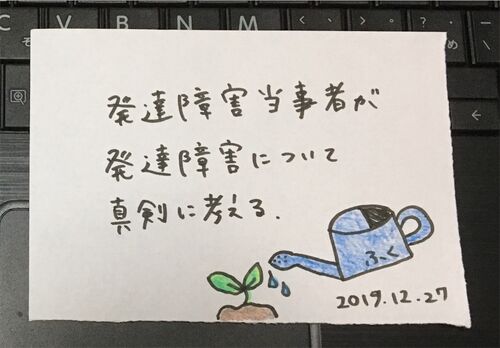 C V B N M
発達障害当事者が
発達障害について
真剣に考える.
ふく
2019.12.27